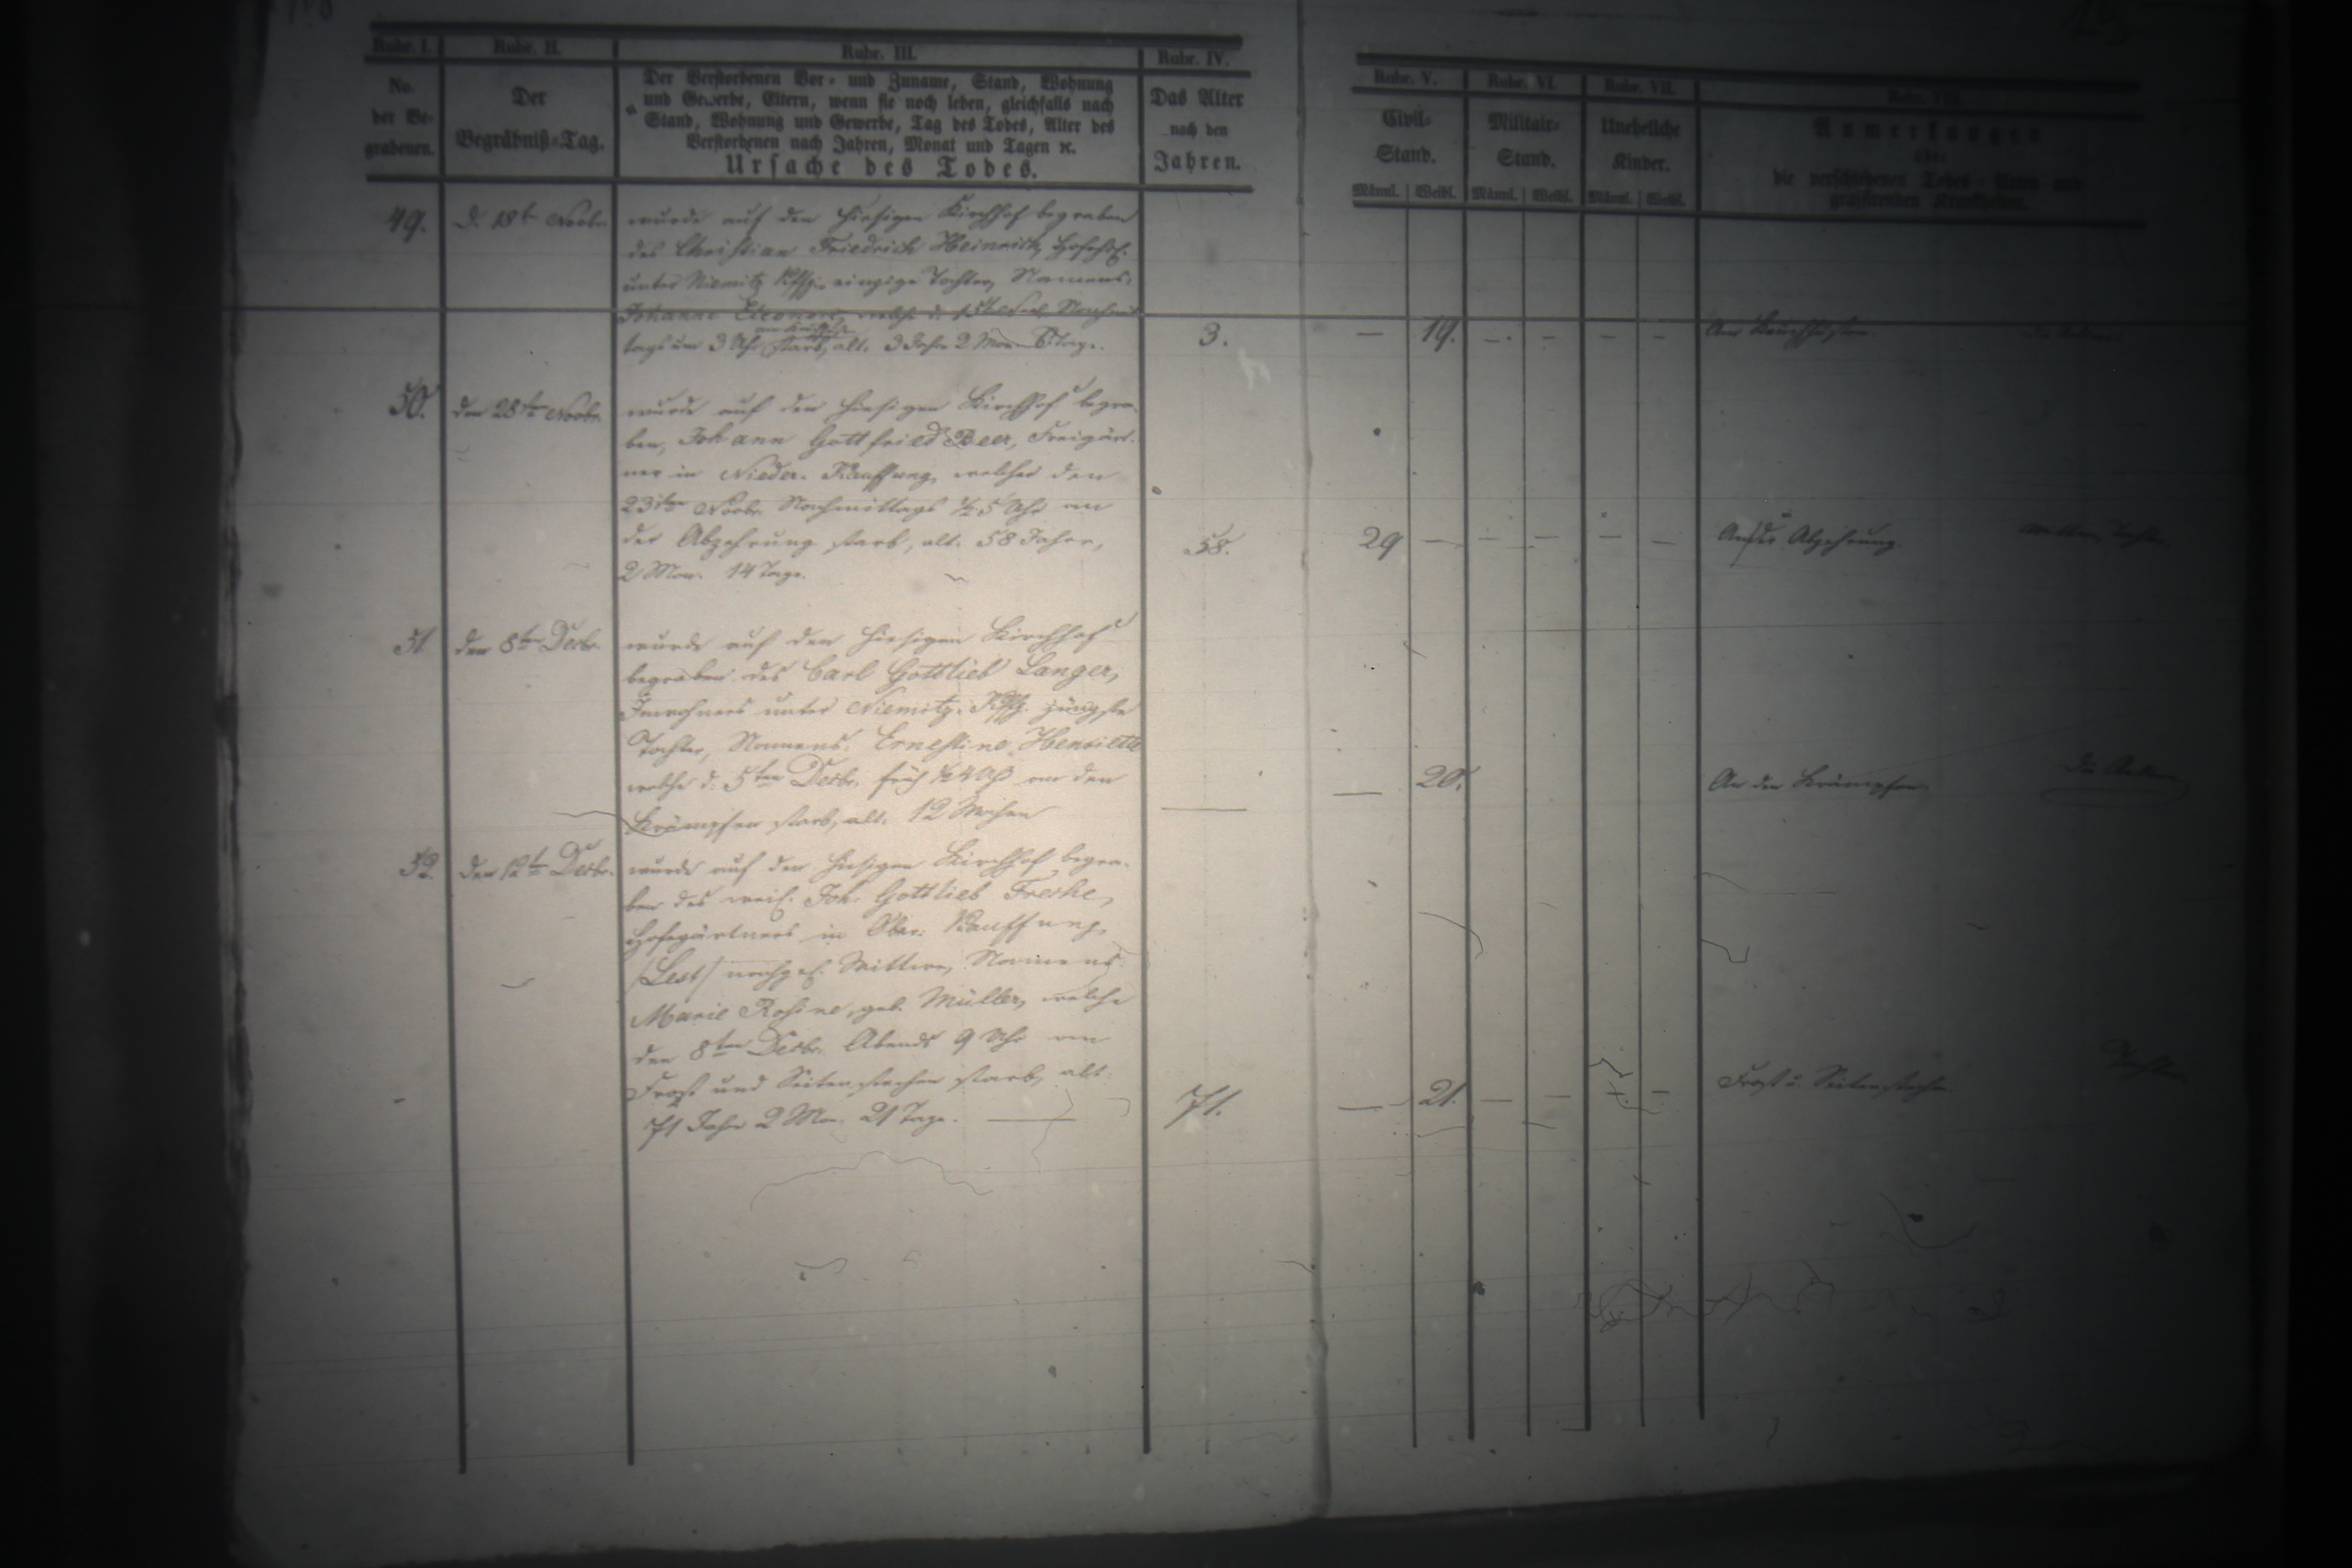 Rubr. I.
No.
der Be-
grabenen.
Rubr. II.
Der
Begräbniß-Tag.
Rubr. III.
Der Verstorbenen Vor- und Zuname, Stand, Wohnung
und Gewerbe, Eltern, wenn sie noch leben, gleichfalls nach
Stand, Wohnung und Gewerbe, Tag des Todes, Alter des
Verstorbenen nach Jahren, Monat und Tagen ꝛc.
Ursache des Todes.
Rubr. IV.
Das Alter
nach den
Jahren.
Rubr. V.
Civil-
Stand.
Männl. Weibl.
Rubr. VI.
Militair-
Stand.
Männl. Weibl.
Rubr. VII.
Uneheliche
Kinder.
Männl. Weibl.
Anmerkungen
über
die verschiedenen Todes-Arten und
grassirenden Krankheiten.
49. d. 18t Novbr. wurde auf den hiesigen Kirchhof begraben
des Christian Friedrich Heinrich,
unter Niemitz Kffg. einzige Tochter, Namens:
Johanne Eleonore, welche d. Nachmit-
tags um 3 Uhr starb, alt. 3 Jahre 2 Mon. 6 Tage. 3. — 19. — — — —
50. den 28ten Novbr. wurde auf den hiesigen Kirchhof begra-
ben, Johann Gottfried Beer, Freigärt-
ner in Nieder-Kauffung, welcher den
23sten Novbr. Nachmittags ½5 Uhr an
der Abzehrung starb, alt. 58 Jahre, 58. 29 — — — — — An der Abzehrung.
2 Mon. 14 Tage.
51. den 8ten Decbr. wurde auf den hiesigen Kirchhof
begraben des Carl Gottlieb Langer,
Inwohners unter Niemitz-Kffg. jüngste
Tochter, Namens: Ernestine Henriette
welche d. 5ten Decbr. früh ½4 Uhr an den — 20. An den Krämpfen.
Krämpfen starb, alt. 12 Wochen —
52. den 12t Decbr. wurde auf den hiesigen Kirchhof begra-
ben des weil. Joh. Gottlieb Freche,
Hofegärtners in Ober-Kauffung,
/Lest/ nachgel. Wittwe, Namens:
Marie Rosine, geb. Müller, welche
den 8ten Decbr. Abends 9 Uhr am
Frost und Seitenstechen starb, alt. 71. — 21. — — — — Frost u. Seitenstechen.
71 Jahr 2 Mon. 21 Tage. —